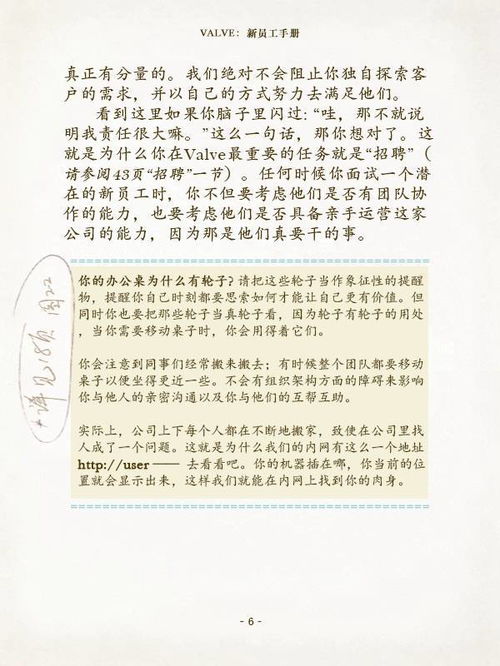 VALVE：新员工手册
真正有分量的。我们绝对不会阻止你独自探索客
户的需求，并以自己的方式努力去满足他们。
看到这里如果你脑子里闪过：“哇，那不就说
明我责任很大嘛。”这么一句话，那你想对了。这
就是为什么你在Valve最重要的任务就是“招聘”（
请参阅43页“招聘”一节）。任何时候你面试一个潜
在的新员工时，你不但要考虑他们是否有团队协
作的能力，也要考虑他们是否具备亲手运营这家
公司的能力，因为那是他们真要干的事。
你的办公桌为什么有轮子？请把这些轮子当作象征性的提醒
物，提醒你自己时刻都要思索如何才能让自己更有价值。但
同时你也要把那些轮子当真轮子看，因为轮子有轮子的用处
，当你需要移动桌子时，你会用得着它们。
你会注意到同事们经常搬来搬去；有时候整个团队都要移动
桌子以便坐得更近一些。不会有组织架构方面的障碍来影响
你与他人的亲密沟通以及你与他们的互帮互助。
实际上，公司上下每个人都在不断地搬家，致使在公司里找
人成了一个问题。这就是为什么我们的内网有这么一个地址
http://user —— 去看看吧。你的机器插在哪，你当前的位
置就会显示出来，这样我们就能在内网上找到你的肉身。
*详见18页 图22
- 6 -